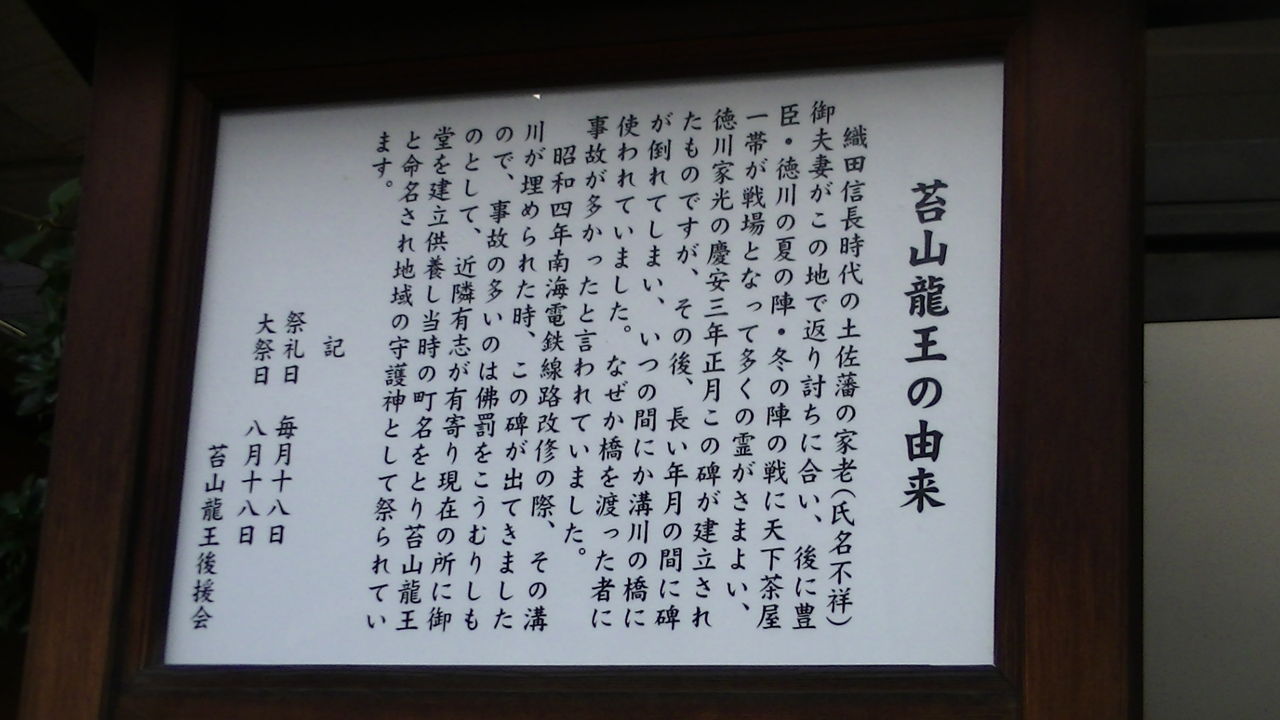 苔山龍王の由来
織田信長時代の土佐藩の家老(氏名不祥)
御夫妻がこの地で返り討ちに合い、後に豊
臣・徳川の夏の陣・冬の陣の戦に天下茶屋
一帯が戦場となって多くの霊がさまよい、
徳川家光の慶安三年正月この碑が建立され
たものですが、その後、長い年月の間に碑
が倒れてしまい、いつの間にか溝川の橋に
使われていました。なぜか橋を渡った者に
事故が多かったと言われていました。
昭和四年南海電鉄線路改修の際、その溝
川が埋められた時、この碑が出てきました
ので、事故の多いのは佛罰をこうむりしも
のとして、近隣有志が有寄り現在の所に御
堂を建立供養し当時の町名をとり苔山龍王
と命名され地域の守護神として祭られてい
ます。
記
祭礼日 毎月十八日
大祭日 八月十八日
苔山龍王後援会